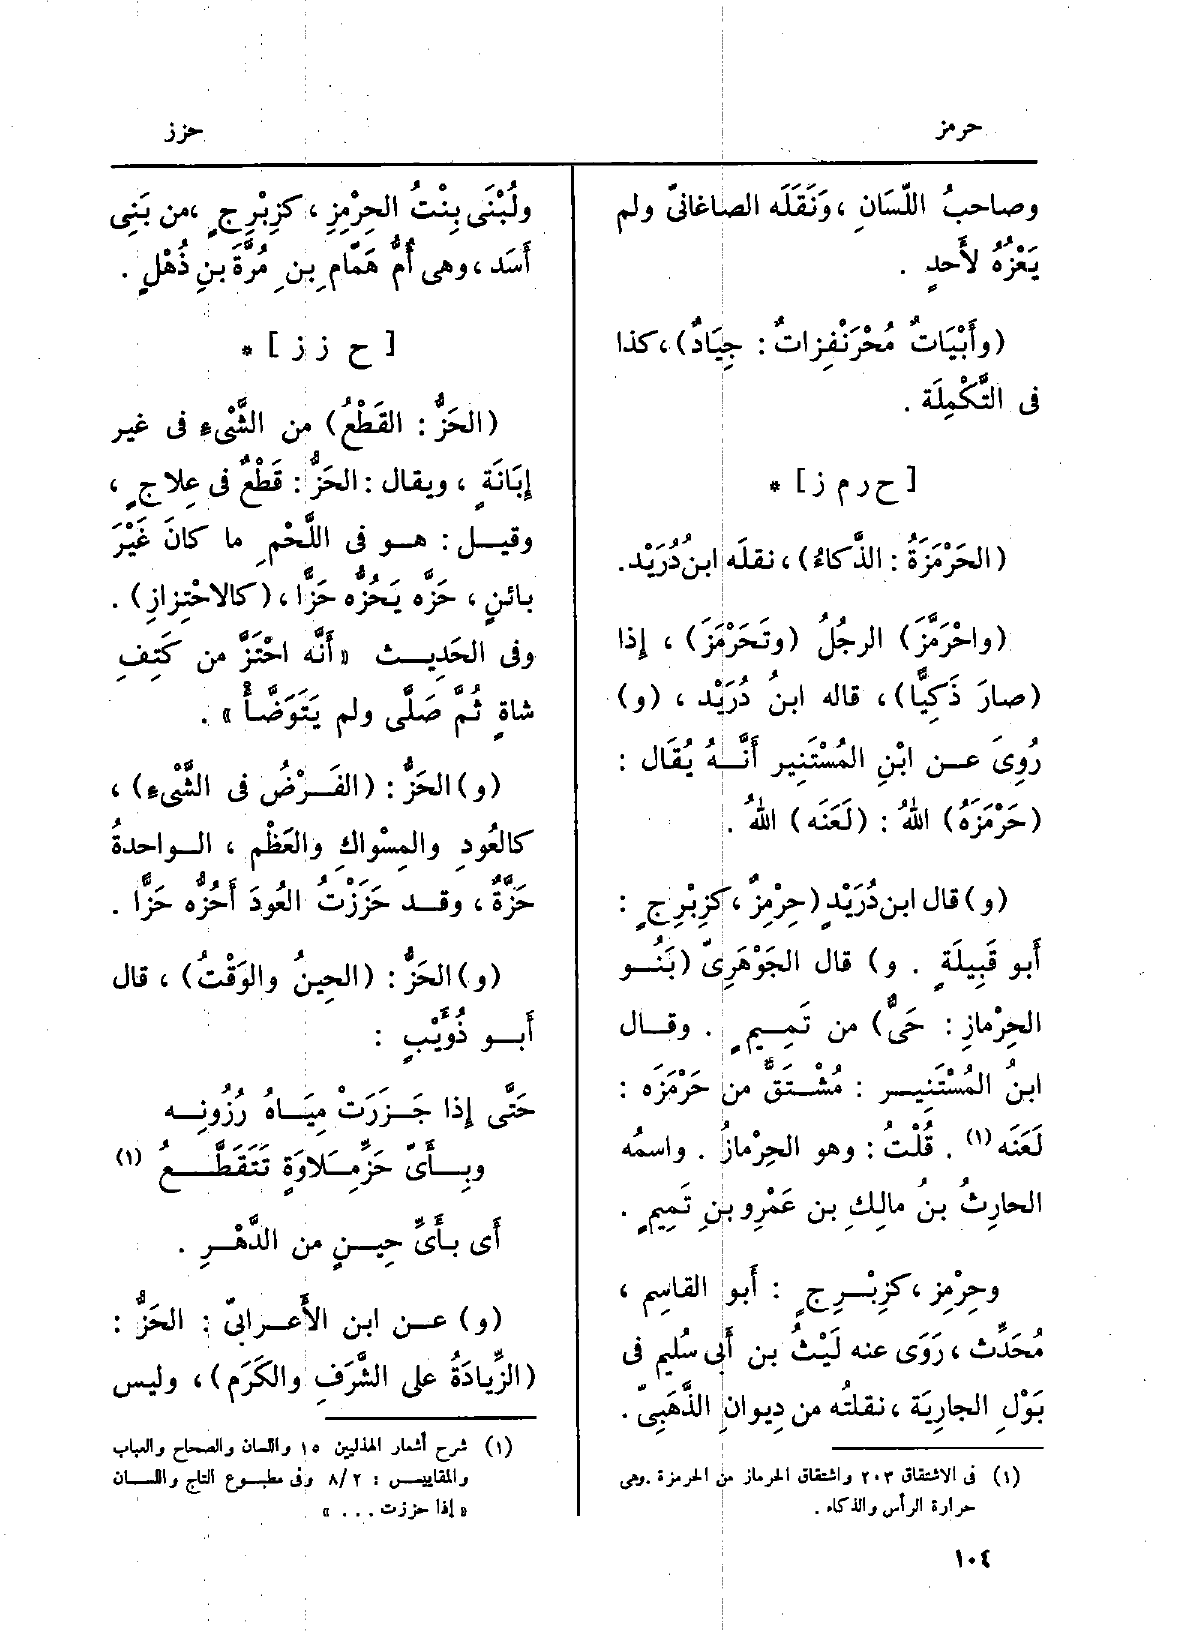 حرمز
حزز
وصاحبُ اللِّسَانِ ، وَنَقَلَه الصاغانىّ ولم
يَعْزُهُ لأَحدٍ .
(وأَبْيَاتٌ مُحْرَنْفِزاتٌ : جِيَادٌ) ، كذا
فى التَّكْمِلَة .
[ ح ر م ز ] *
(الحَرْمَزَةُ : الذَّكاءُ) ، نقلَه ابنُ دُرَيْد .
(واحْرَمَّزَ) الرجلُ (وتَحَرْمَزَ) ، إذا
(صارَ ذَكِيًّا) ، قاله ابنُ دُرَيْد ، (و)
رُوِىَ عـن ابْنِ المُسْتَنِير أَنَّـهُ يُقَال :
(حَرْمَزَهُ) اللهُ : (لَعَنَه) اللهُ .
(و) قال ابن دُرَيْدٍ (حِرْمِزٌ ، كزِبْرِجٍ :
أَبو قَبِيلَةٍ . و) قال الجَوْهَرِىّ (بَنُـو
الحِرْمازِ : حَىٌّ) من تَمِيـمٍ . وقـال
ابنُ المُسْتَنِيـر : مُشْتَـقٌّ من حَرْمَزَه :
لَعَنَه (١) . قُلْتُ : وهو الحِرْمازُ . واسمُه
الحارِثُ بنُ مالِكِ بن عَمْرِو بنِ تَمِيمٍ .
وحِرْمِز ، كزِبْـرِجٍ : أَبو القاسِم ،
مُحَدِّث ، رَوَى عنه لَيْثُ بن أَبى سُليم فى
بَوْلِ الجارِيَة ، نقلتُه من دِيوانِ الذَّهَبِىّ .
(١) فى الاشتقاق ٢٠٣ واشتقاق الحرماز من الحرمزة . وهى
حرارة الرأس والذكاء .
١٠٤
ولُبْنَى بِنْتُ الحِرْمِزِ ، كزِبْرِجٍ ، من بَنِى
أَسَد ، وهى أُمُّ هَمّامِ بنِ مُرَّةَ بنِ ذُهْلٍ .
[ ح ز ز ] *
(الحَزُّ : القَطْعُ) من الشَّىْءِ فى غير
إبَانَةٍ ، ويقال : الحَزُّ : قَطْعٌ فى عِلاجٍ ،
وقيـل : هـو فى اللَّحْمِ ما كانَ غَيْرَ
بائنٍ ، حَزَّه يَحُزُّه حَزًّا ، (كالاحْتِزازِ) .
وفى الحَدِيـث « أَنَّه احْتَزَّ من كَتِفِ
شاةٍ ثُمَّ صَلَّى ولم يَتَوَضَّأْ » .
(و) الحَزُّ : (الفَـرْضُ فى الشَّىْءِ) ،
كالعُودِ والمِسْواكِ والعَظْمِ ، الـواحدةُ
حَزَّةٌ ، وقـد حَزَزْتُ العُودَ أَحُزُّه حَزًّا .
(و) الحَزُّ : (الحِينُ والوَقْتُ) ، قال
أَبـو ذُوَيْبٍ :
حَتَّى إذا جَـزَرَتْ مِيَـاهُ رُزُونِـه
وبِـأَىّ حَزِّ مَـلاوَةٍ تَتَقَطَّـعُ (١)
أَى بـأَىِّ حِيـنٍ من الدَّهْـرِ .
(و) عـن ابن الأَعـرابىّ : الحَزُّ :
(الزِّيادَةُ على الشَّرَفِ والكَرَم) ، وليس
(١) شرح أشعار الهذليين ١٥ واللسان والصحاح والعباب
والمقاييس : ٨/٢ وفى مطبوع التاج واللسـان
« إذا حززت . . . »